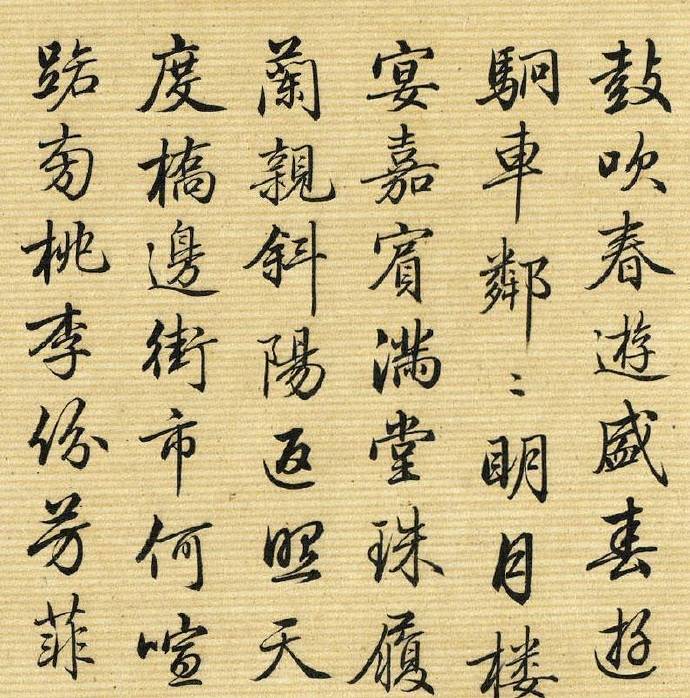 鼓吹春遊盛春遊
駉車鄰〻明月楼
宴嘉賓滿堂珠履
蘭親斜陽返照天
度橋邊街市何喧
路旁桃李份芳菲